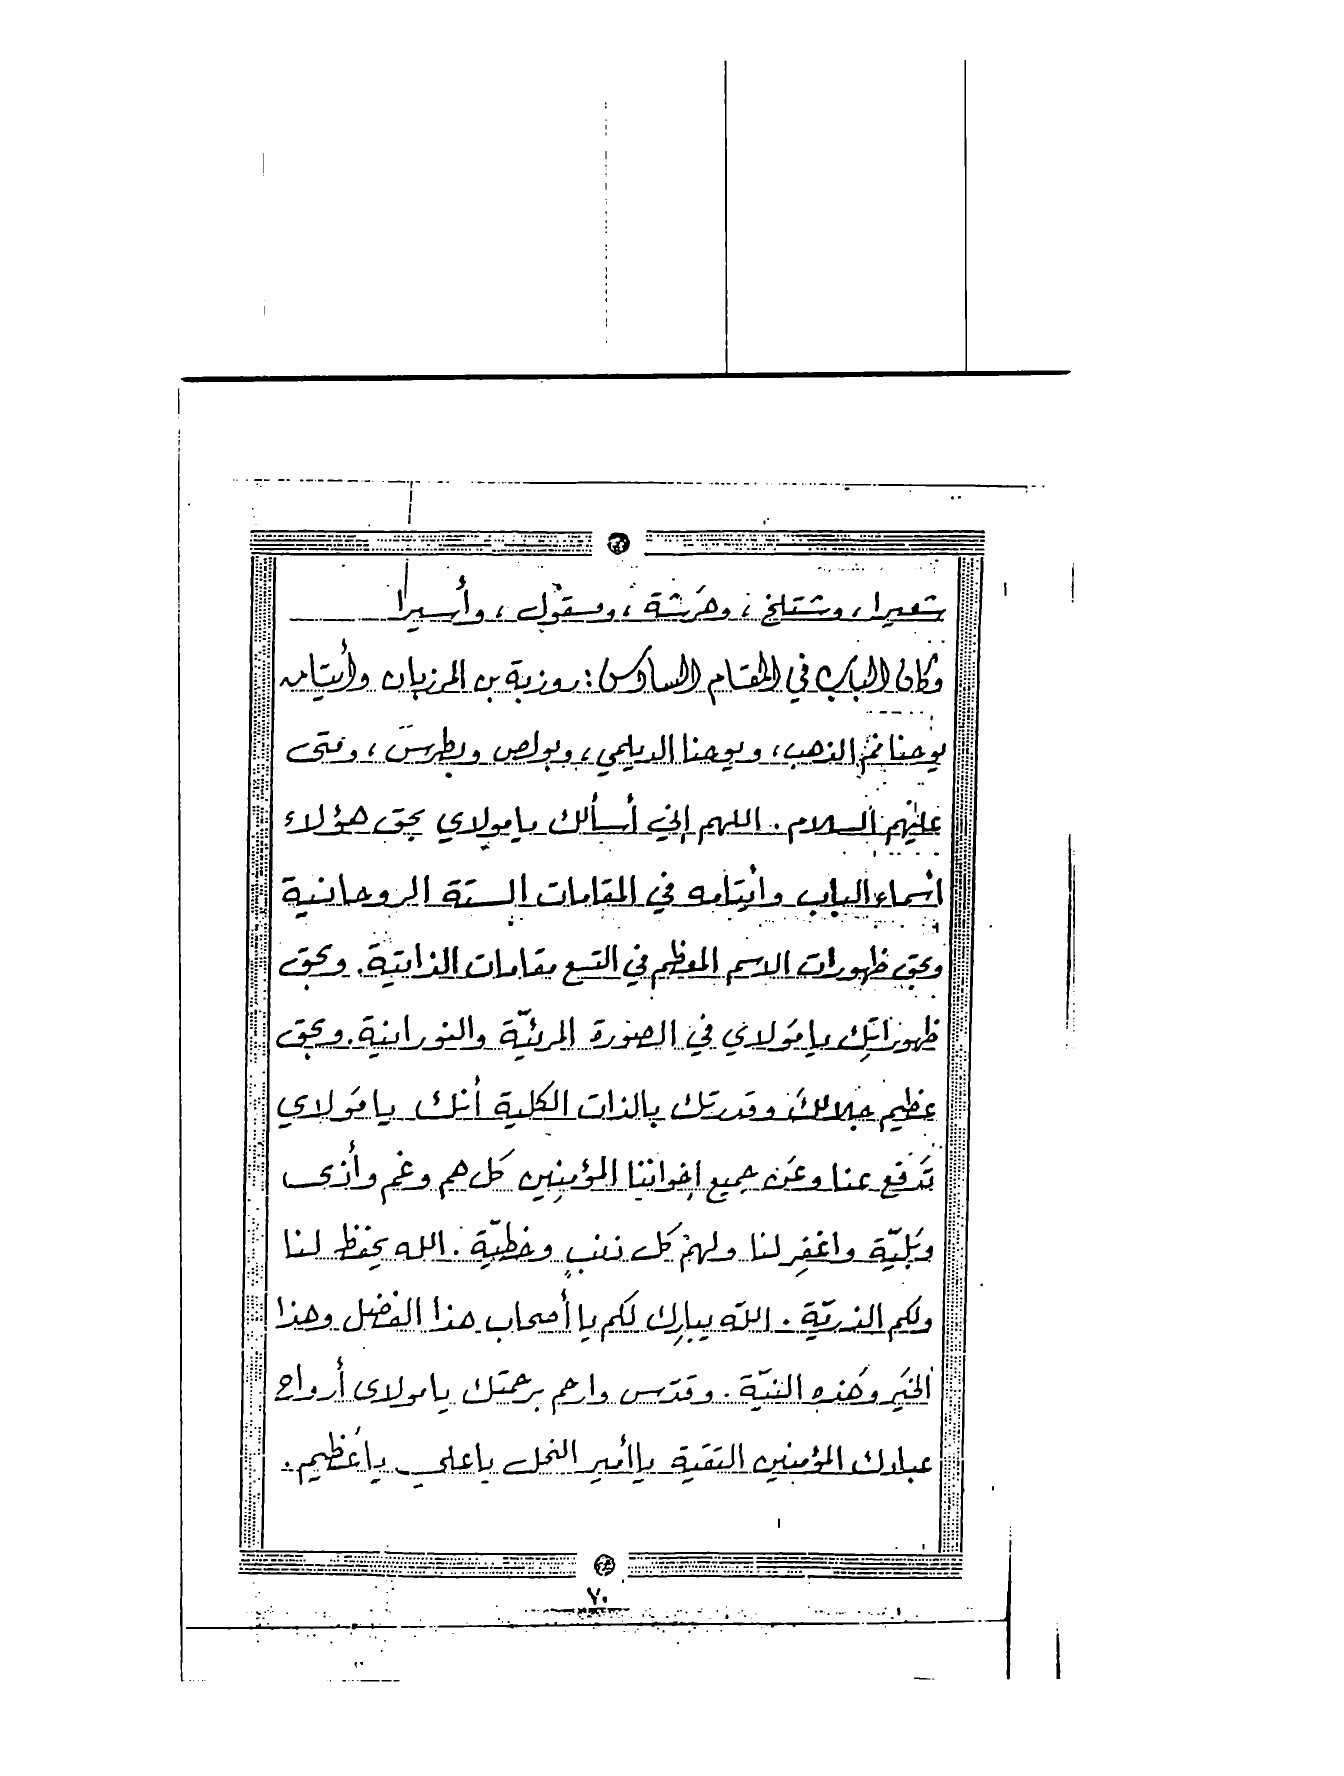 شعيرا، وشتلخ، وهَرشة، وسقول، وأسيرا
وكان الباب في المقام السادس: روزبة بن المرزبان وأيتامه
يوحنا فم الذهب، ويوحنا الديلمي، وبولص وبطرس، ومتى
عليهم السلام. اللهم إني أسألك يامولاي بحق هؤلاء
أسماء الباب وأيتامه في المقامات الستة الروحانية
وبحق ظهورات الاسم المعظم في التسع مقامات الذاتية. وبحق
ظهوراتِك يامَولاي في الصورة المرئيّة والنورانية. وبحق
عظيم جلالك وقدرتك بالذات الكلية أنك يامَولاي
تَدفع عنا وعَن جميع إخواننا المؤمنِين كل هم وغم وأذى
وبَليّة واغفِر لنا ولهم كل ذنبٍ وخطيّة. الله يحفظ لنا
ولكم الذريّة. الله يبارِك لكم يا أصحاب هذا الفضل وهذا
الخَير وهَذه النيّة. وقدّس وارحم برحمتك يامولاي أرواح
عبادك المؤمنين التقية ياأمير النحل ياعلي ياعَظيم.
٧٠